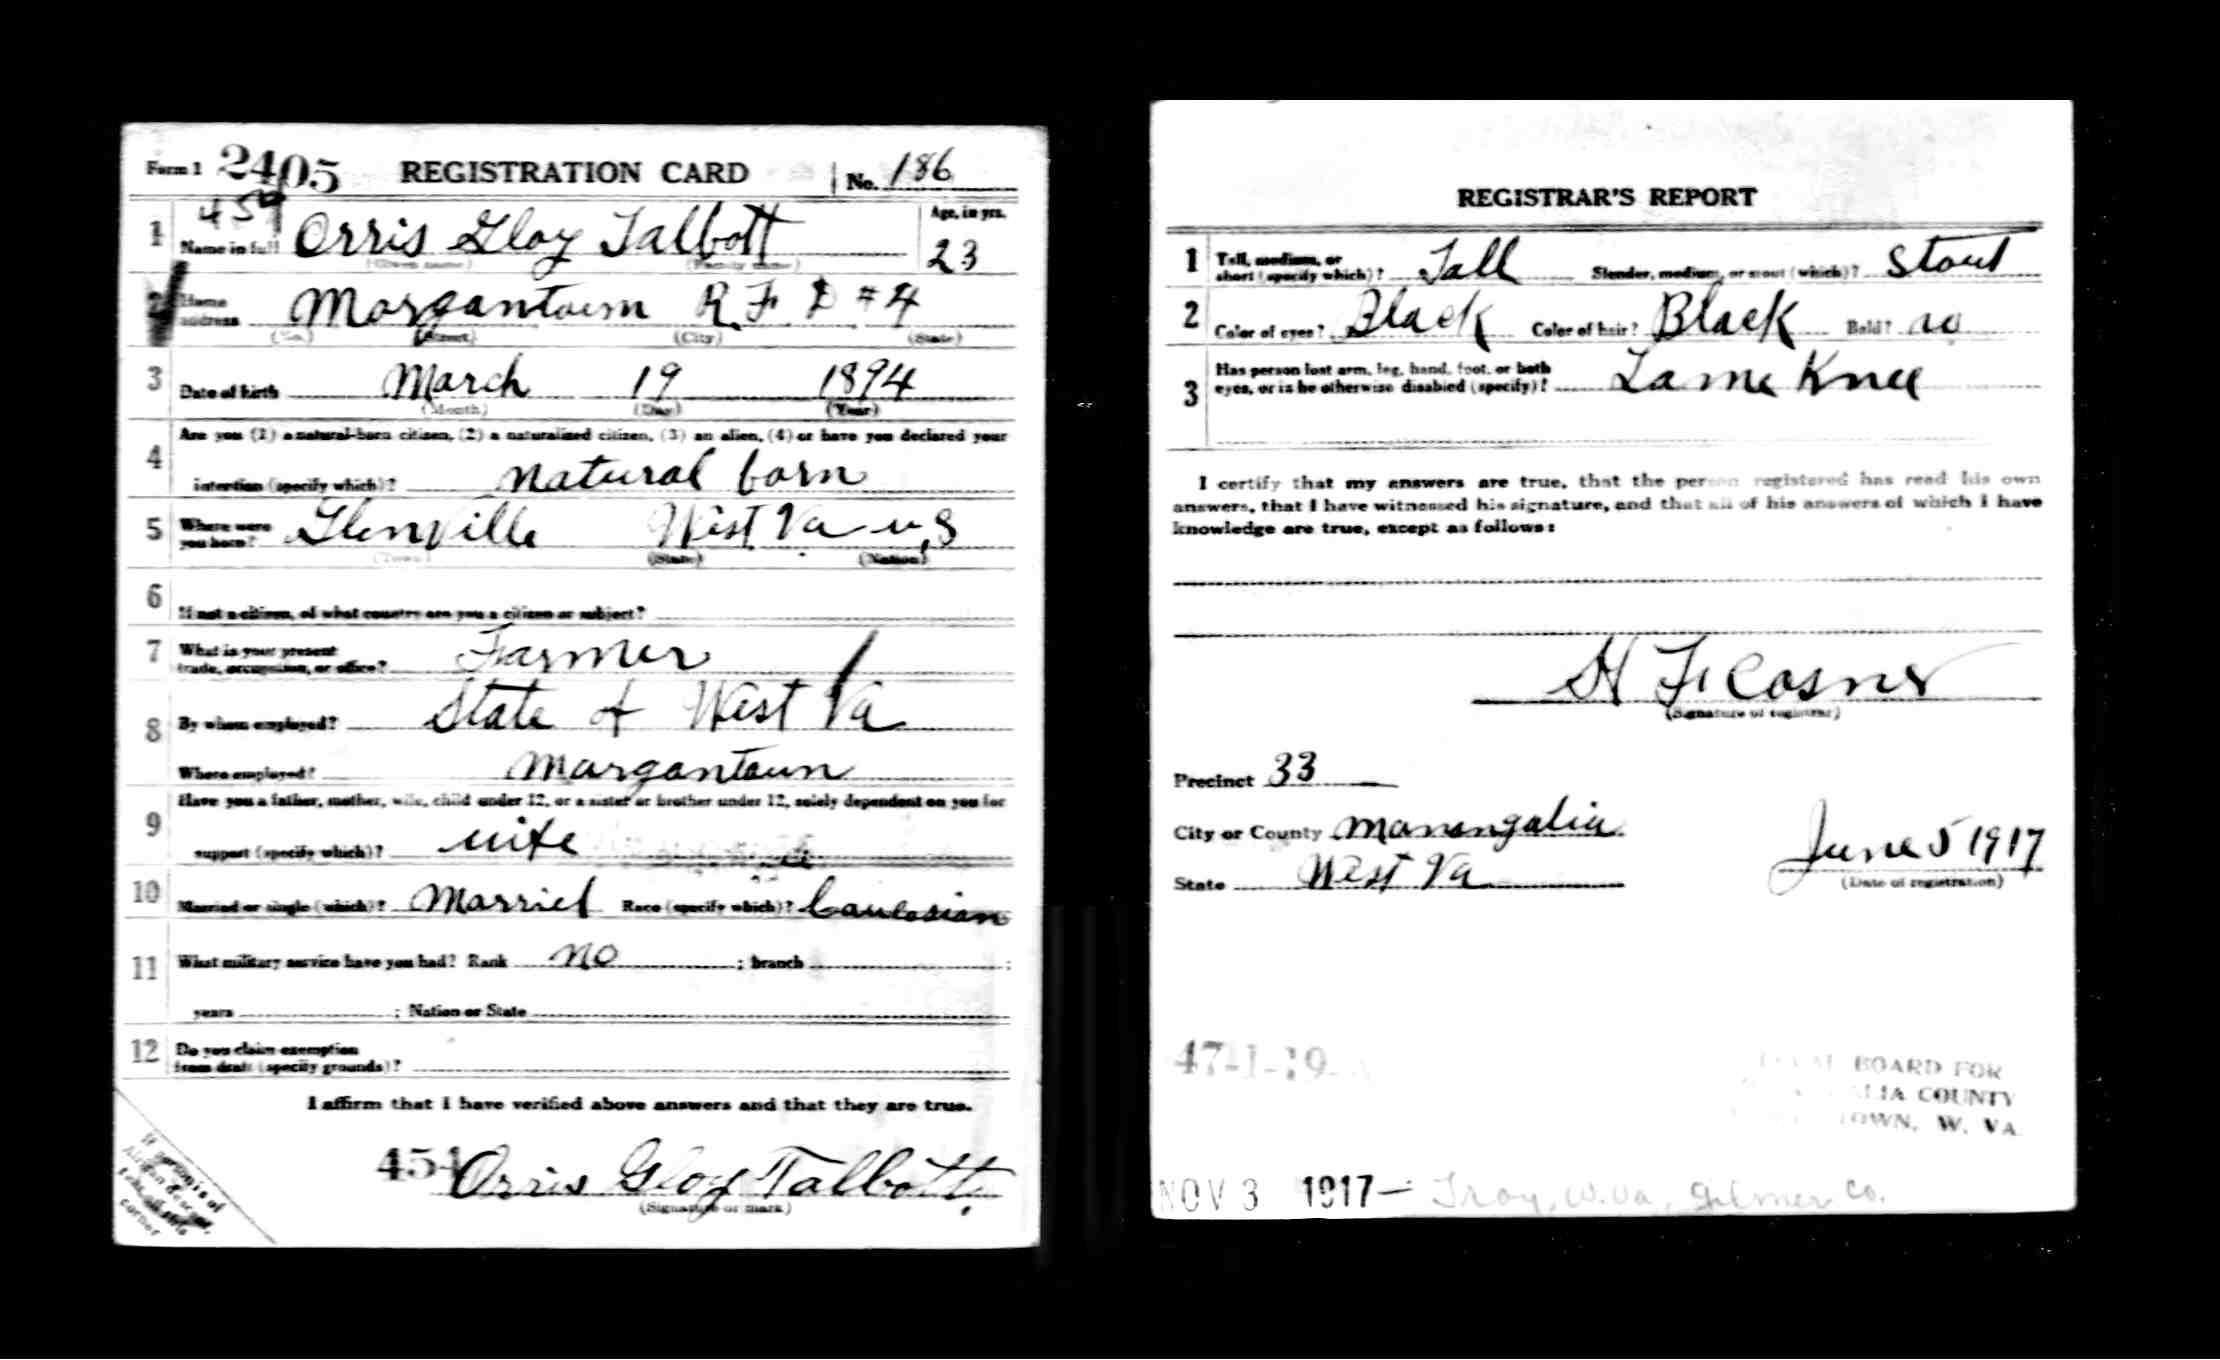 Form 1 2405 REGISTRATION CARD No. 186
454
1 Name in full Orris Gloy Talbott Age, in yrs.
(Given name) (Family name) 23
2 Home address Morgantown R. F. D #4
(No.) (Street) (City) (State)
3 Date of birth March 19 1894
(Month) (Day) (Year)
4 Are you (1) a natural-born citizen, (2) a naturalized citizen, (3) an alien, (4) or have you declared your
intention (specify which)? natural born
5 Where were you born? Glenville West Va U,S
(Town) (State) (Nation)
6 If not a citizen, of what country are you a citizen or subject?
7 What is your present
trade, occupation, or office? Farmer
8 By whom employed? State of West Va
Where employed? Morgantown
9 Have you a father, mother, wife, child under 12, or a sister or brother under 12, solely dependent on you for
support (specify which)? wife
10 Married or single (which)? Married Race (specify which)? Caucasian
11 What military service have you had? Rank no ; branch ;
years ; Nation or State
12 Do you claim exemption
from draft (specify grounds)?
I affirm that I have verified above answers and that they are true.
454 Orris Gloy Talbott.
(Signature or mark)
If person is of
African descent,
tear off this
corner
REGISTRAR'S REPORT
1 Tall, medium, or
short (specify which)? Tall Slender, medium, or stout (which)? Stout
2 Color of eyes? Black Color of hair? Black Bald? no
3 Has person lost arm, leg, hand, foot, or both
eyes, or is he otherwise disabled (specify)? Lame Knee
I certify that my answers are true, that the person registered has read his own
answers, that I have witnessed his signature, and that all of his answers of which I have
knowledge are true, except as follows:
H F Cosner
(Signature of registrar)
Precinct 33
City or County Monongalia
State West Va
June 5 1917
(Date of registration)
47-1-19-A
BOARD FOR
LIA COUNTY
TOWN, W. VA.
NOV 3 1917 — Troy, W. Va, Gilmer Co.